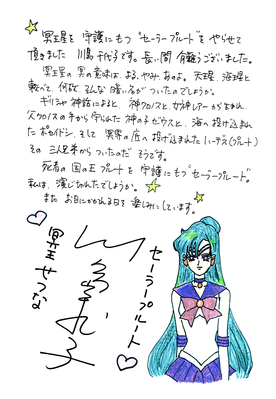 冥王星を守護にもつ"セーラープルート"をやらせて
頂きました 川島千代子です。長い間 有難うございました。
冥王星の冥の意味は、よる、やみ、あのよ。天王星、海王星と
較べて、何故、そんな暗い名がついたのでしょうか。
ギリシャ神話によると、神クロノスと、女神レアーから生まれ、
父クロノスの手から守られた神の子ゼウスと、海へ投げ込まれ
たポセイドン、そして 冥界の底へ投げ込まれたハーデス(プルート)
その三兄弟からついたのだそうです。
死者の国の王プルートを守護にもつ"セーラープルート"。
私は、演じきれたでしょうか。
また お目にかかれる日を楽しみにしています。
セーラープルート
冥王せつな